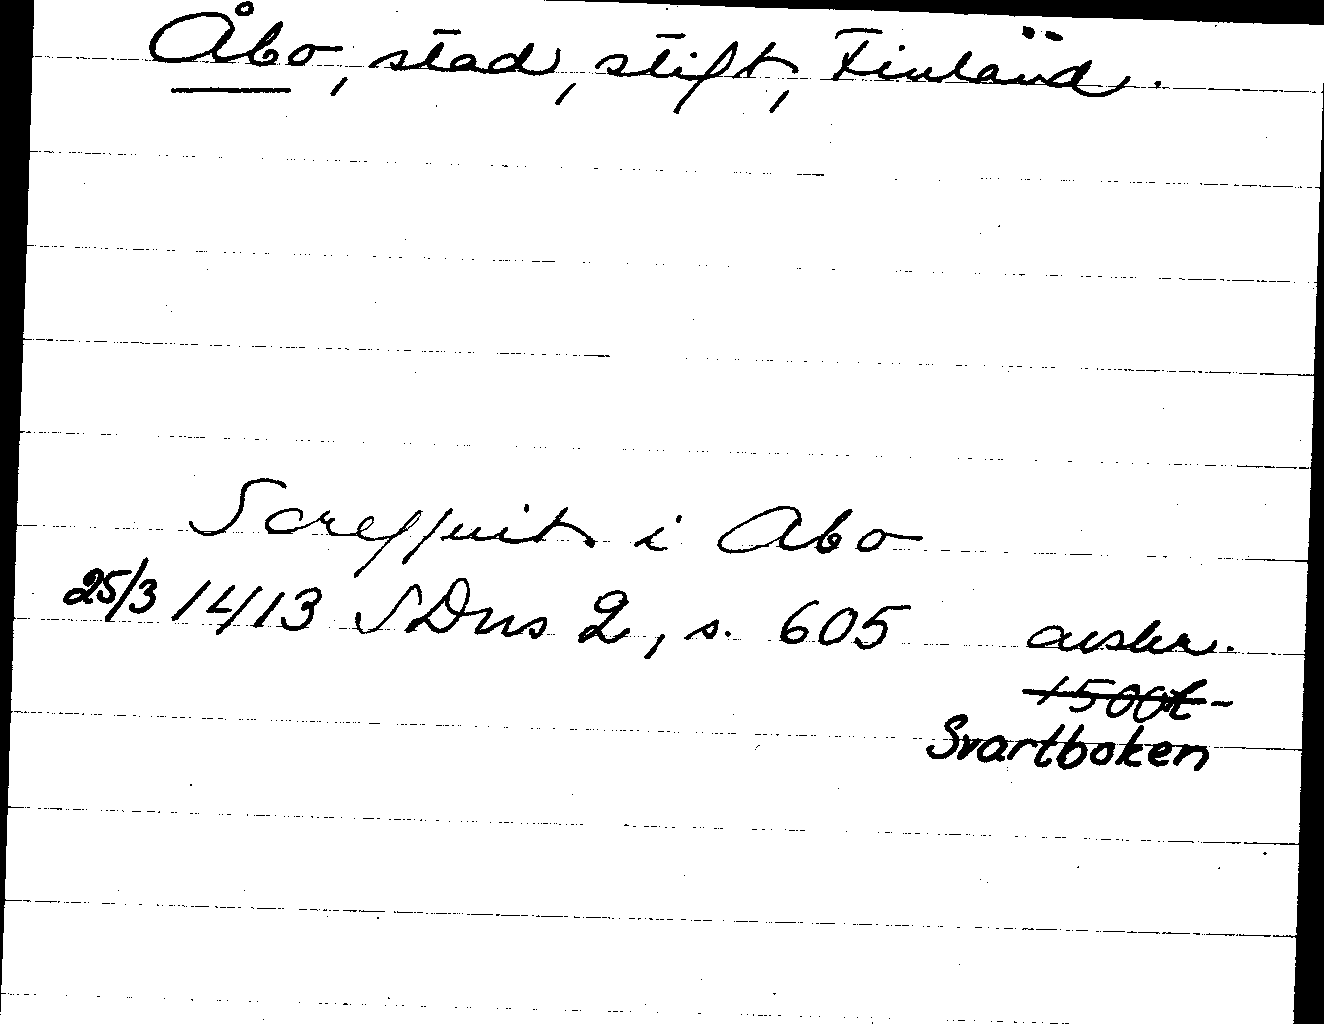 Åbo, stad, stift, Finland.
Screffuit i Abo
25/3 1413 SDns 2, s. 605 avskr.
1500t
Svartboken